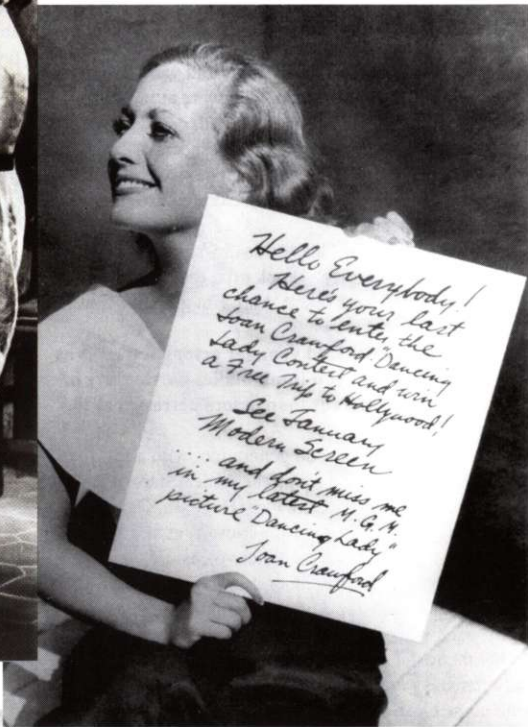 Hello Everybody!
Here's your last
chance to enter the
Joan Crawford "Dancing
Lady Contest and win
a Free Trip to Hollywood!
See January
Modern Screen
.... and don't miss me
in my latest M.G.M.
picture "Dancing Lady"
Joan Crawford